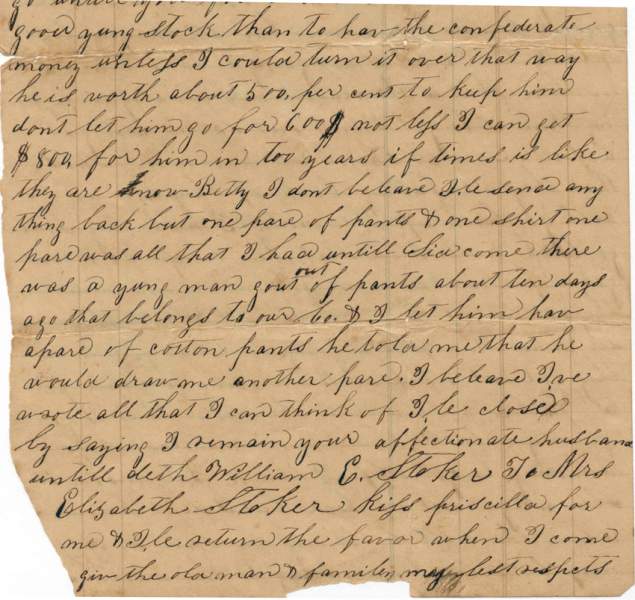 good yung stock than to hav the confederate
money unless I could turn it over that way
he is worth about 500. per cent to keep him
dont let him go for 600$ not less I can get
$800 for him in too years if times is like
they are now Betty I dont beleave I.le send any
thing back but one pare of pants & one shirt one
pare was all that I had untill Sid come there
was a yung man gout out of pants about ten days
ago that belongs to our Co. & I let him hav
apare of cotton pants he told me that he
would draw me another pare. I beleave I've
wrote all that I can think of I,le close
by saying I remain your affectionate husband
untill deth William E. Stoker To Mrs
Elizabeth Stoker kiss priscilla for
me & I,le return the favor when I come
giv the old man & family my best respects